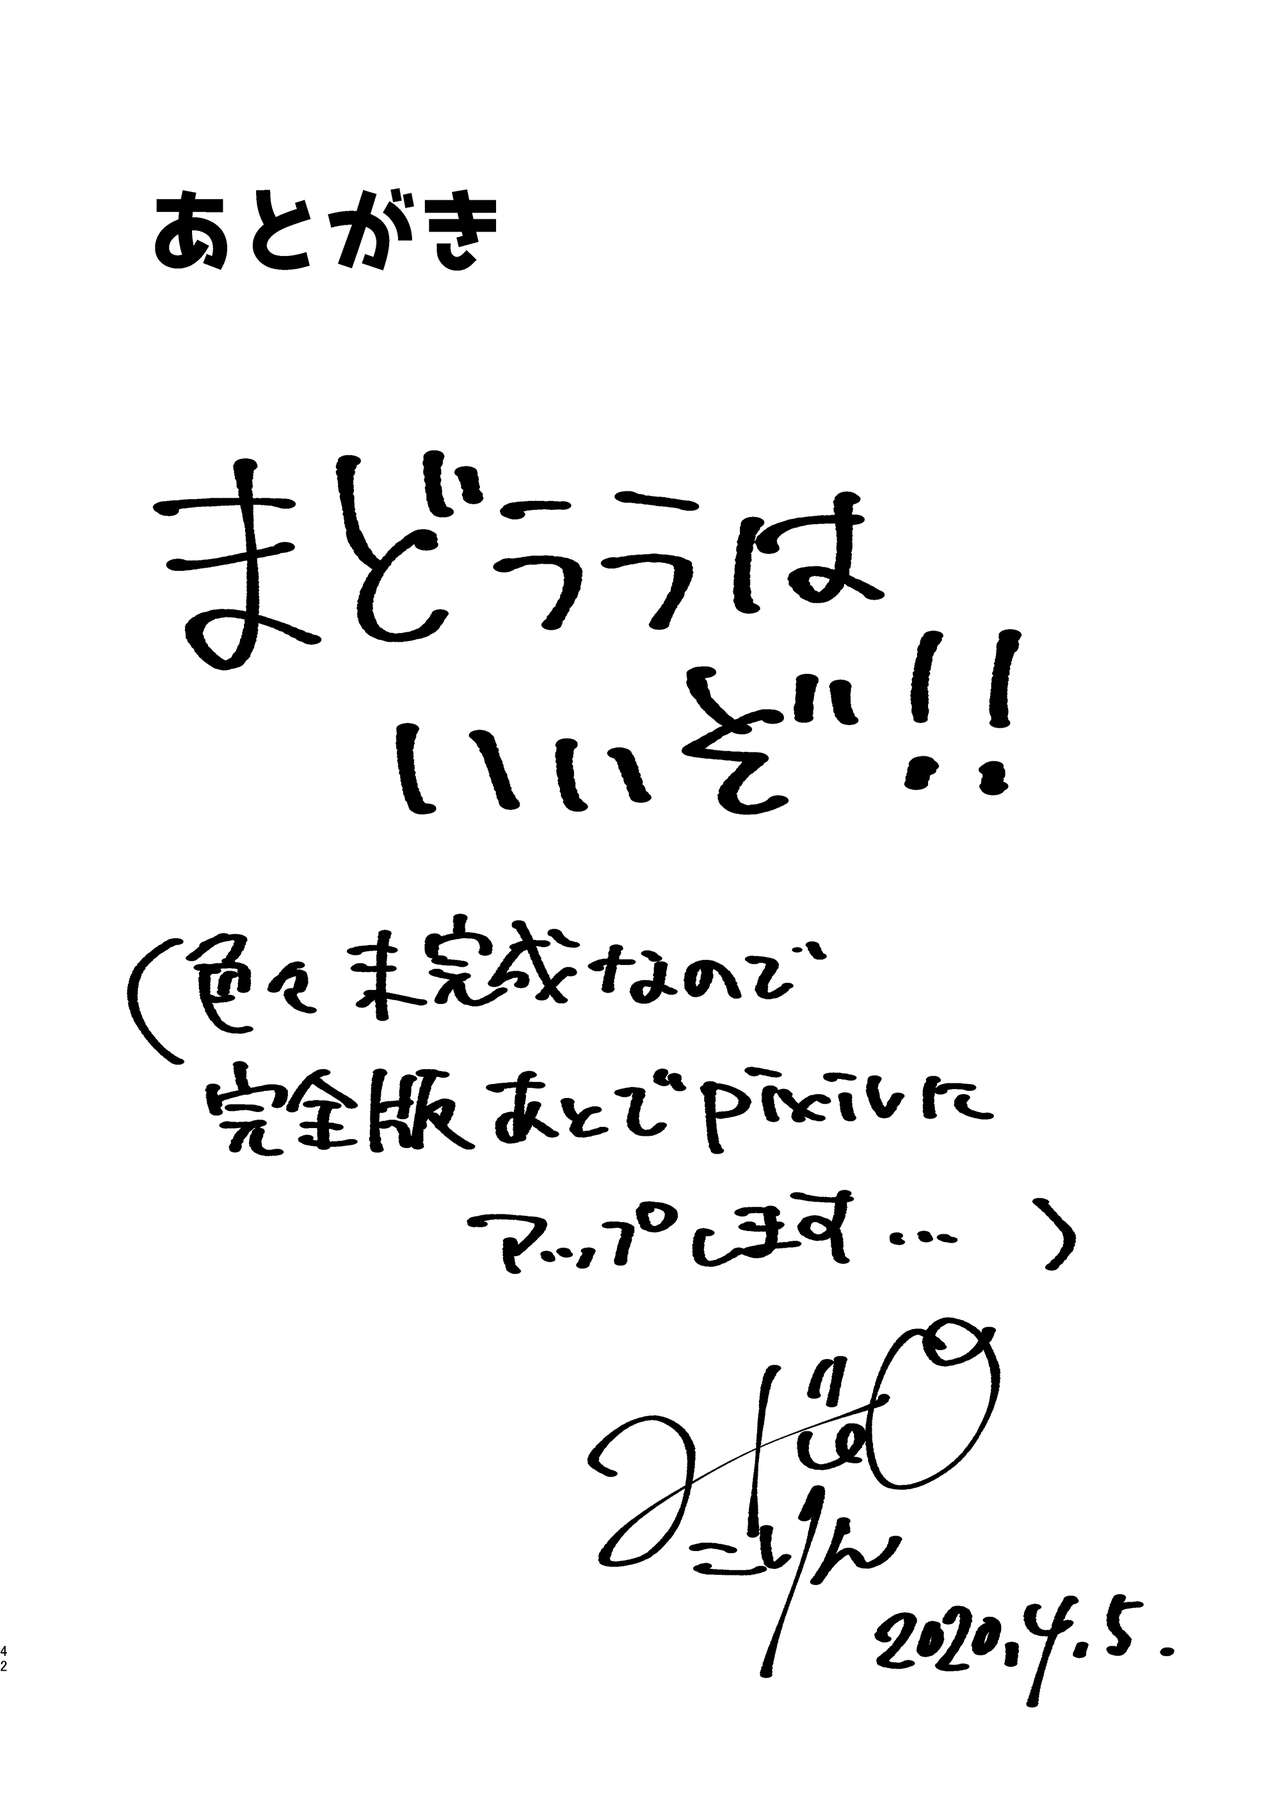 あとがき
まどううは
いいぞ!!
(色々未完成なので
完全版あとでpixivに
アップします…)
2020.4.5.
42